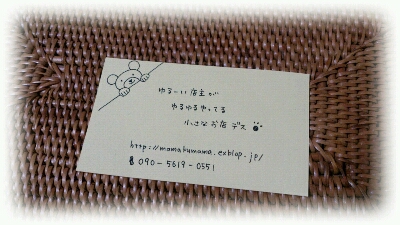 ゆる〜い店主が
ゆるゆるやってる
小さなお店デス
http://mamakumama.exblog.jp/
090-5619-0551